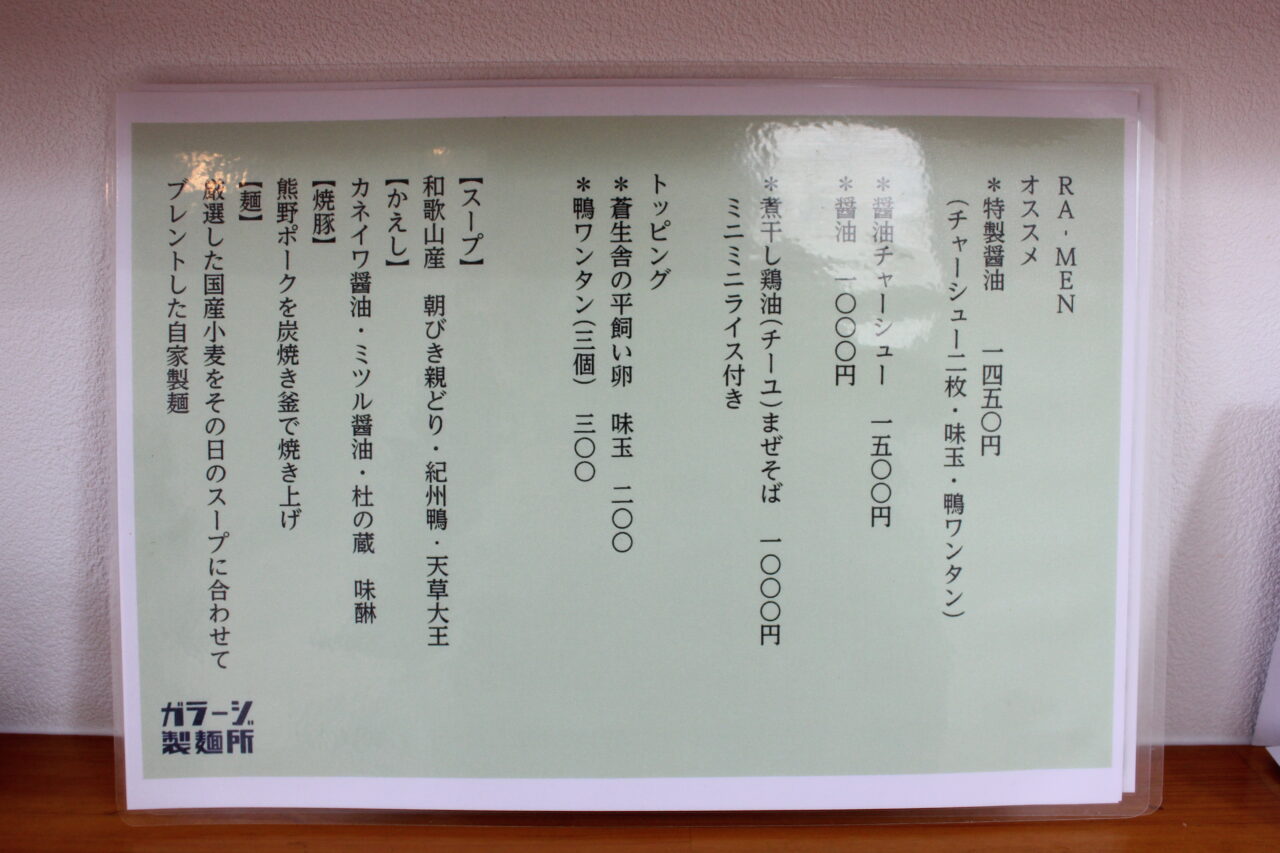 RA-MEN
オススメ
＊特製醤油　一四五〇円
（チャーシュー二枚・味玉・鴨ワンタン）
＊醤油チャーシュー　一五〇〇円
＊醤油　一〇〇〇円
＊煮干し鶏油（チーユ）まぜそば　一〇〇〇円
ミニミニライス付き
トッピング
＊蒼生舎の平飼い卵　味玉　二〇〇
＊鴨ワンタン（三個）　三〇〇
【スープ】
和歌山産　朝びき親どり・紀州鴨・天草大王
【かえし】
カネイワ醤油・ミツル醤油・杜の蔵　味醂
【焼豚】
熊野ポークを炭焼き釜で焼き上げ
【麺】
厳選した国産小麦をその日のスープに合わせて
ブレントした自家製麺
ガラージ
製麺所